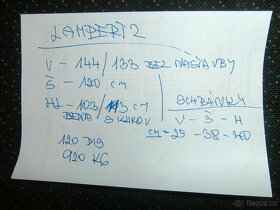 LAMBERT 2
V - 144/133 BEZ NÁSTAVBY
Š - 120 CM
HL - 103/113 CM
S KLIKOU
120 DIS
920 KG
SCHRÁNKY
V - Š - H
CM - 25 - 38 - 40
Bazoš.cz